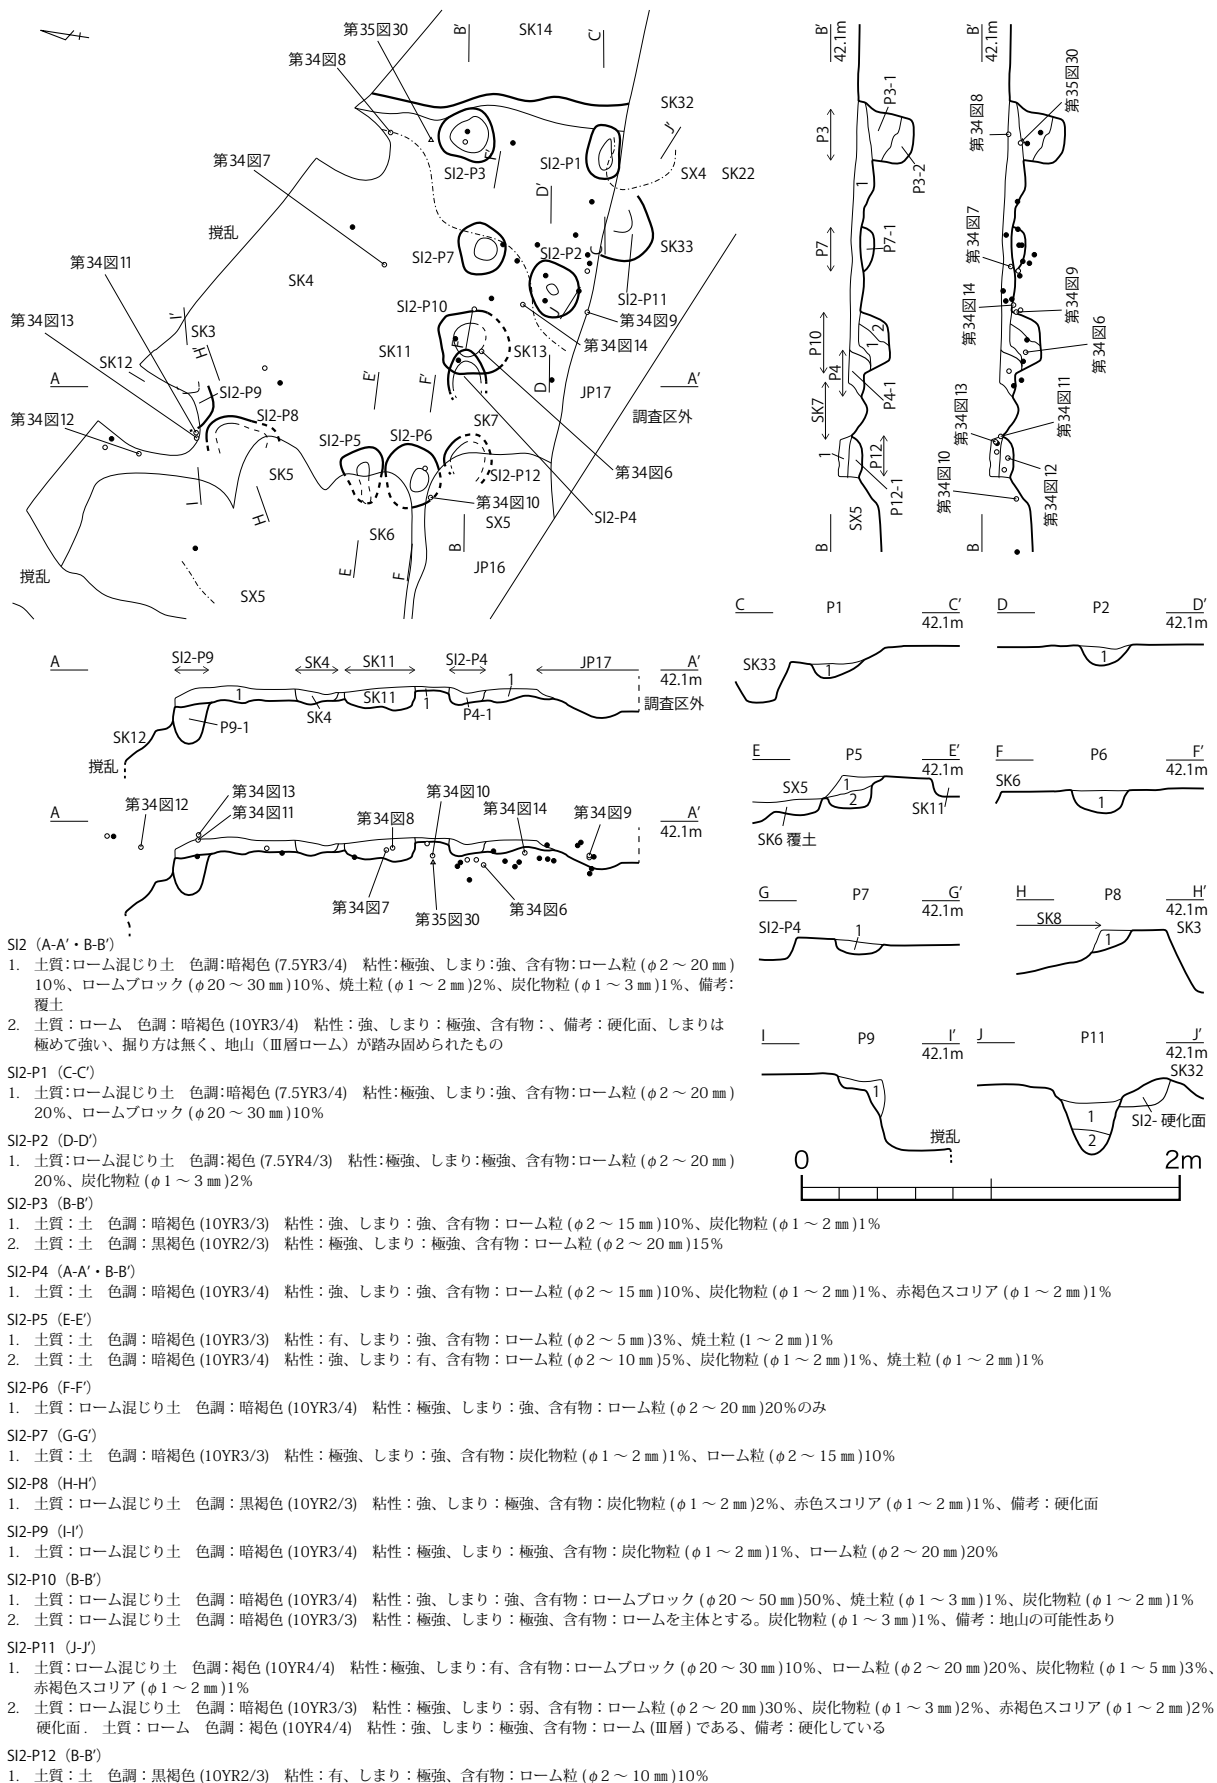 第35図30
第34図8
B'
SK14
C'
SK32
J'
SI2-P3
J'
SI2-P1
SX4
SK22
第34図7
D'
撹乱
SK33
SI2-P7
SI2-P2
C
第34図11
SK4
I'
SI2-P10
SI2-P11
第34図9
第34図13
SK3
SK12
H'
SK11
SK13
第34図14
A
E'
F'
D
JP17
A'
調査区外
SI2-P9
SI2-P8
第34図12
SK7
SI2-P5
SI2-P6
SI2-P12
第34図6
SK5
I
H
第34図10
SX5
SI2-P4
SK6
B
E
F
JP16
撹乱
SX5
B'
42.1m
P3-1
P3
P3-2
1
P7
P7-1
P10
2
1
P4
P4-1
SK7
1
P12
P12-1
SX5
B
B'
42.1m
第35図30
第34図8
第34図7
第34図14
第34図9
第34図6
第34図13
第34図11
第34図10
第34図12
B
A
SI2-P9
SK4
SK11
SI2-P4
JP17
A'
42.1m
調査区外
1
SK11
1
1
SK4
P4-1
P9-1
SK12
撹乱
A
第34図12
第34図13
第34図11
第34図8
第34図10
第34図14
第34図9
A'
42.1m
第34図7
第35図30
第34図6
C
P1
C'
42.1m
SK33
1
D
P2
D'
42.1m
1
E
P5
E'
42.1m
SX5
1
2
SK11
SK6 覆土
F
P6
F'
42.1m
SK6
1
G
P7
G'
42.1m
SI2-P4
1
H
P8
H'
42.1m
SK8
SK3
1
I
P9
I'
42.1m
1
撹乱
J
P11
J'
42.1m
SK32
1
2
SI2- 硬化面
0
2m
SI2（A-A'・B-B'）
1. 土質：ローム混じり土 色調：暗褐色 (7.5YR3/4) 粘性：極強、しまり：強、含有物：ローム粒 (φ2～20㎜)
10%、ロームブロック (φ20～30㎜)10%、焼土粒 (φ1～2㎜)2%、炭化物粒 (φ1～3㎜)1%、備考：
覆土
2. 土質：ローム 色調：暗褐色 (10YR3/4) 粘性：強、しまり：極強、含有物：、備考：硬化面、しまりは
極めて強い、掘り方は無く、地山（Ⅲ層ローム）が踏み固められたもの
SI2-P1（C-C'）
1. 土質：ローム混じり土 色調：暗褐色 (7.5YR3/4) 粘性：極強、しまり：強、含有物：ローム粒 (φ2～20㎜)
20%、ロームブロック (φ20～30㎜)10%
SI2-P2（D-D'）
1. 土質：ローム混じり土 色調：褐色 (7.5YR4/3) 粘性：極強、しまり：極強、含有物：ローム粒 (φ2～20㎜)
20%、炭化物粒 (φ1～3㎜)2%
SI2-P3（B-B'）
1. 土質：土 色調：暗褐色 (10YR3/3) 粘性：強、しまり：強、含有物：ローム粒 (φ2～15㎜)10%、炭化物粒 (φ1～2㎜)1%
2. 土質：土 色調：黒褐色 (10YR2/3) 粘性：極強、しまり：極強、含有物：ローム粒 (φ2～20㎜)15%
SI2-P4（A-A'・B-B'）
1. 土質：土 色調：暗褐色 (10YR3/4) 粘性：強、しまり：強、含有物：ローム粒 (φ2～15㎜)10%、炭化物粒 (φ1～2㎜)1%、赤褐色スコリア (φ1～2㎜)1%
SI2-P5（E-E'）
1. 土質：土 色調：暗褐色 (10YR3/3) 粘性：有、しまり：強、含有物：ローム粒 (φ2～5㎜)3%、焼土粒 (1～2㎜)1%
2. 土質：土 色調：暗褐色 (10YR3/4) 粘性：強、しまり：有、含有物：ローム粒 (φ2～10㎜)5%、炭化物粒 (φ1～2㎜)1%、焼土粒 (φ1～2㎜)1%
SI2-P6（F-F'）
1. 土質：ローム混じり土 色調：暗褐色 (10YR3/4) 粘性：極強、しまり：強、含有物：ローム粒 (φ2～20㎜)20%のみ
SI2-P7（G-G'）
1. 土質：土 色調：暗褐色 (10YR3/3) 粘性：極強、しまり：強、含有物：炭化物粒 (φ1～2㎜)1%、ローム粒 (φ2～15㎜)10%
SI2-P8（H-H'）
1. 土質：ローム混じり土 色調：黒褐色 (10YR2/3) 粘性：強、しまり：極強、含有物：炭化物粒 (φ1～2㎜)2%、赤色スコリア (φ1～2㎜)1%、備考：硬化面
SI2-P9（I-I'）
1. 土質：ローム混じり土 色調：暗褐色 (10YR3/4) 粘性：極強、しまり：極強、含有物：炭化物粒 (φ1～2㎜)1%、ローム粒 (φ2～20㎜)20%
SI2-P10（B-B'）
1. 土質：ローム混じり土 色調：暗褐色 (10YR3/4) 粘性：強、しまり：強、含有物：ロームブロック (φ20～50㎜)50%、焼土粒 (φ1～3㎜)1%、炭化物粒 (φ1～2㎜)1%
2. 土質：ローム混じり土 色調：暗褐色 (10YR3/3) 粘性：極強、しまり：極強、含有物：ロームを主体とする。炭化物粒 (φ1～3㎜)1%、備考：地山の可能性あり
SI2-P11（J-J'）
1. 土質：ローム混じり土 色調：褐色 (10YR4/4) 粘性：極強、しまり：有、含有物：ロームブロック (φ20～30㎜)10%、ローム粒 (φ2～20㎜)20%、炭化物粒 (φ1～5㎜)3%、
赤褐色スコリア (φ1～2㎜)1%
2. 土質：ローム混じり土 色調：暗褐色 (10YR3/3) 粘性：極強、しまり：弱、含有物：ローム粒 (φ2～20㎜)30%、炭化物粒 (φ1～3㎜)2%、赤褐色スコリア (φ1～2㎜)2%
硬化面． 土質：ローム 色調：褐色 (10YR4/4) 粘性：強、しまり：極強、含有物：ローム (Ⅲ層) である、備考：硬化している
SI2-P12（B-B'）
1. 土質：土 色調：黒褐色 (10YR2/3) 粘性：有、しまり：極強、含有物：ローム粒 (φ2～10㎜)10%